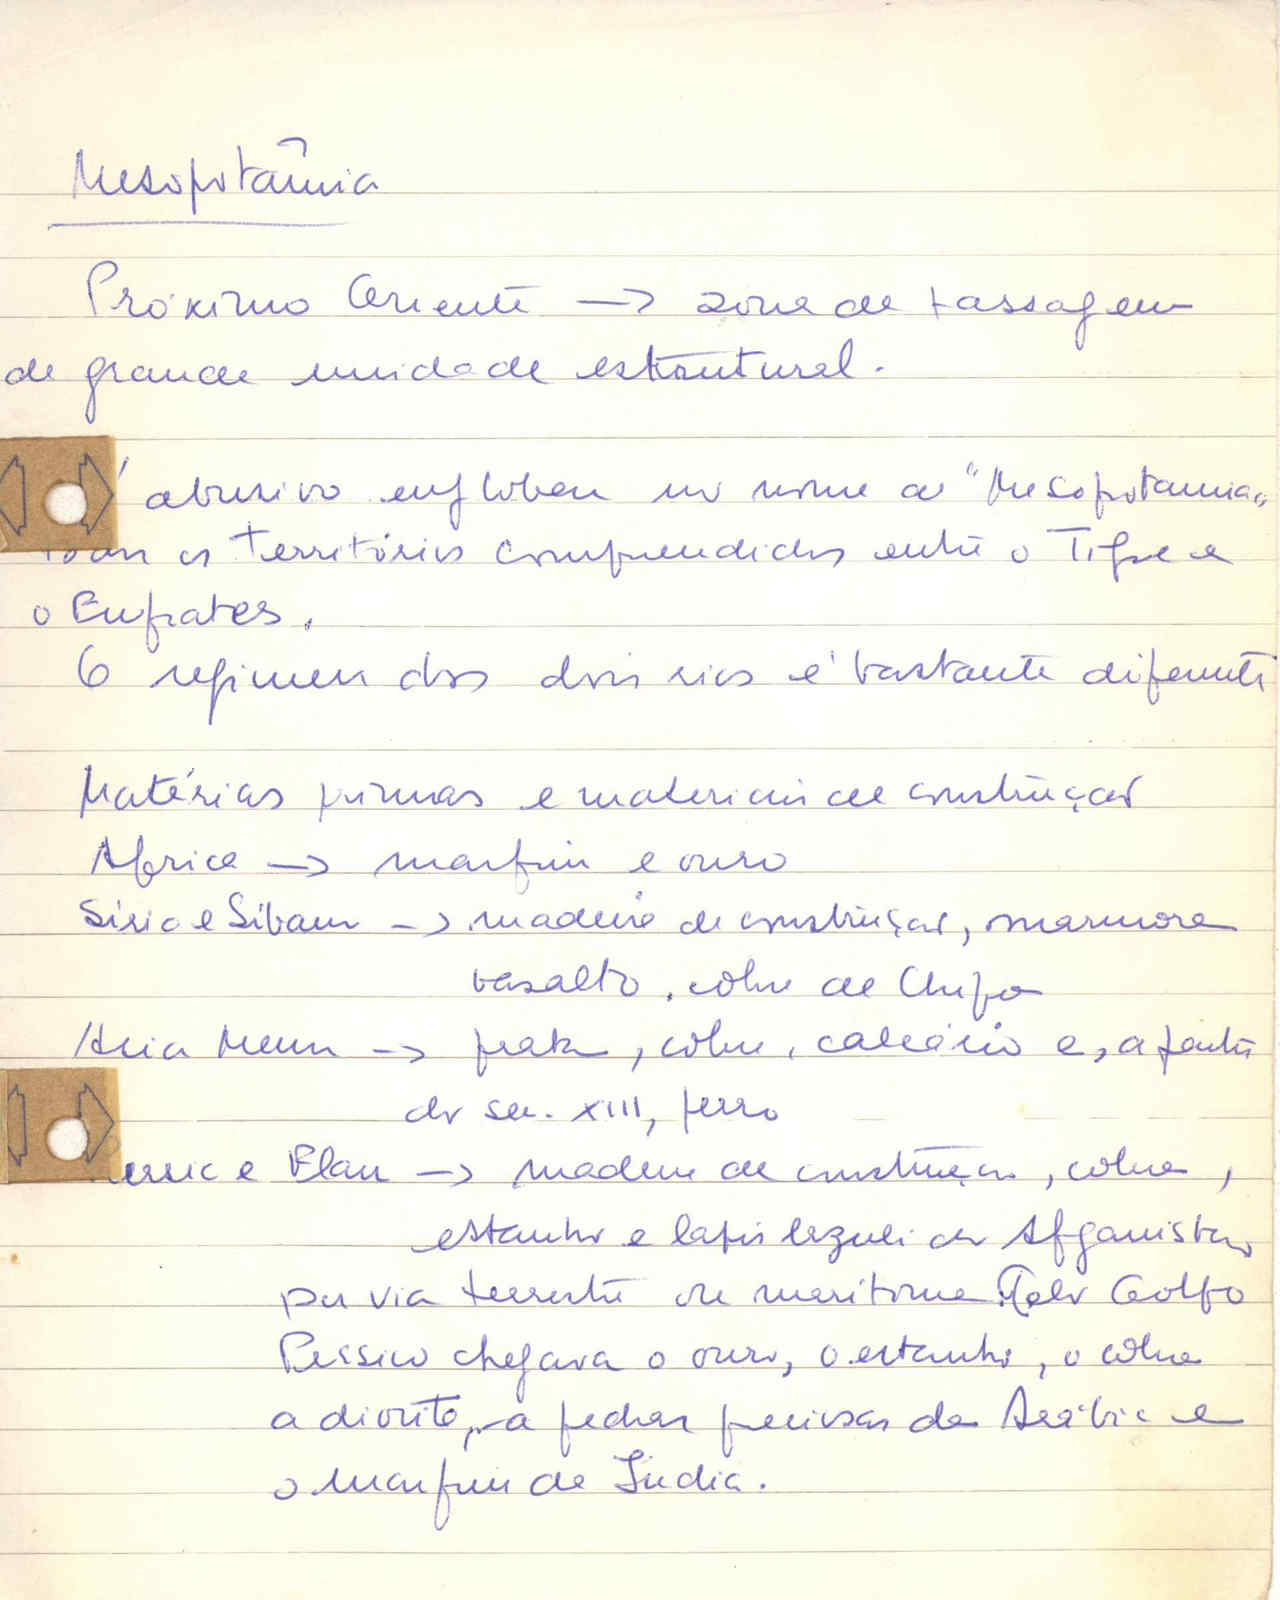 Mesopotâmia
Próximo Oriente → zona de passagem
de grande unidade estrutural.
abusivo englobar no nome de "Mesopotamia"
todos os territórios compreendidos entre o Tigre e
o Eufrates.
O regimen dos dois rios é bastante diferente
Matérias primas e materiais de construção
Africa → marfim e ouro
Síria e Líbano → madeira de construção, marmore
basalto, cobre de Chipre
Asia Menor → prata, cobre, calcário e, a partir
do sec. XIII, ferro
e Elam → madeira de construção, cobre,
estanho e lapis lazuli do Afganistão
por via terrestre ou maritima. Pelo Golfo
Persico chegava o ouro, o estanho, o cobre
a diorite, a pedras preciosas da Arábia e
o marfim da India.